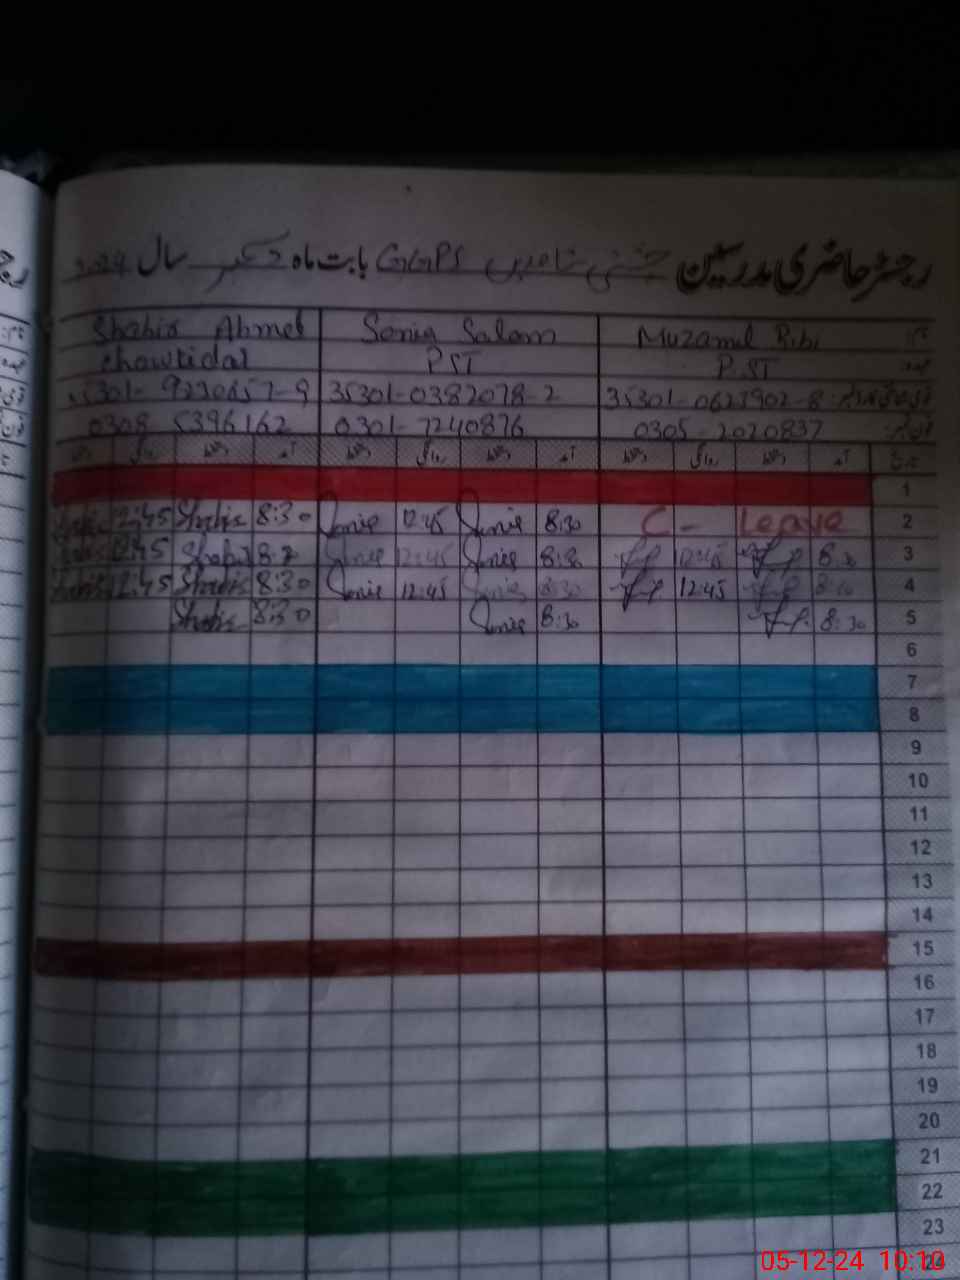 رجسٹر حاضری مدرسین جشنی شاہدیں GGPS بابت ماہ دسمبر سال 2024
نام Muzamil Bibi Sonia Salam Shabir Ahmed
عہدہ P.ST PST Chowkidar
35301-0382078-2
0305-2020837 0301-7240876 0308 5396162
تاریخ آمد دستخط روانگی دستخط آمد دستخط روانگی دستخط آمد دستخط روانگی
1
2 C - Leave 8:30 Sonia 12:45 Sonia 8:30 Shabir 12:45
3 8:30 12:45 8:30 Sonia 12:45 Sonia Shabir 12:45
4 8:30 12:45 8:30 Sonia 12:45 Sonia 8:30 Shabir 12:45
5 8:30 8:30 Sonia 8:30 Shabir
6
7
8
9
10
11
12
13
14
15
16
17
18
19
20
21
22
23
24
05-12-24 10:10